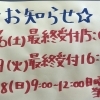 お知らせ☆
6(土)最終受付15:0
9(火)最終受付16:
8(日)9:00-12:00